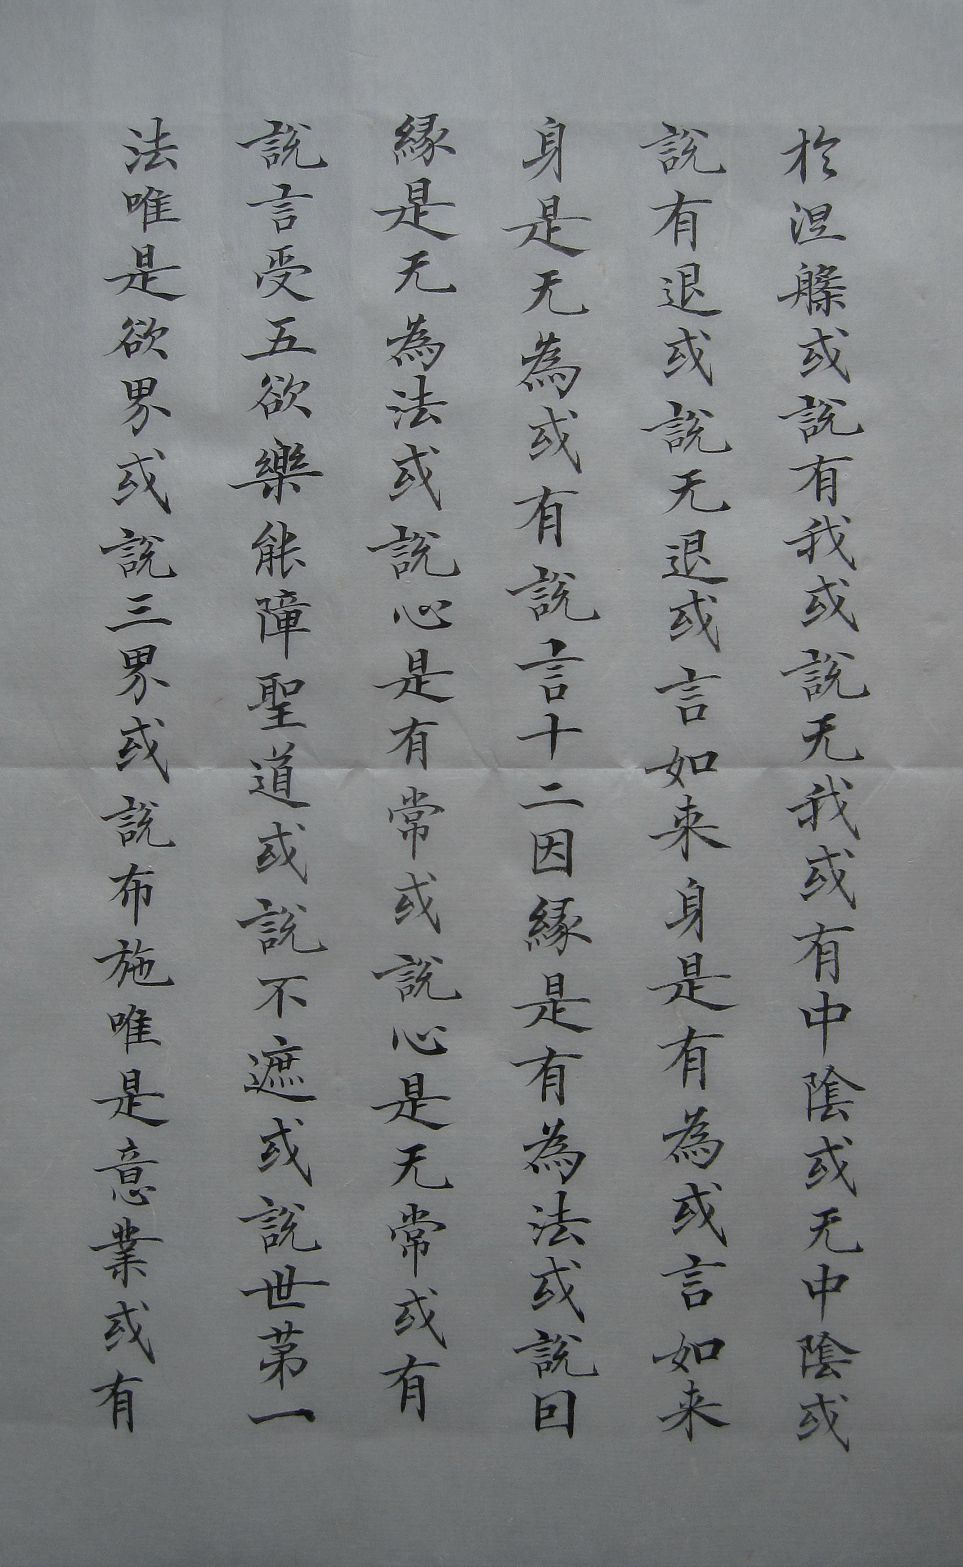 於涅槃或說有我或說无我或有中陰或无中陰或
說有退或說无退或言如来身是有為或言如来
身是无為或有說言十二因緣是有為法或說回
緣是无為法或說心是有常或說心是无常或有
說言受五欲樂能障聖道或說不遮或說世苐一
法唯是欲界或說三界或說布施唯是意業或有